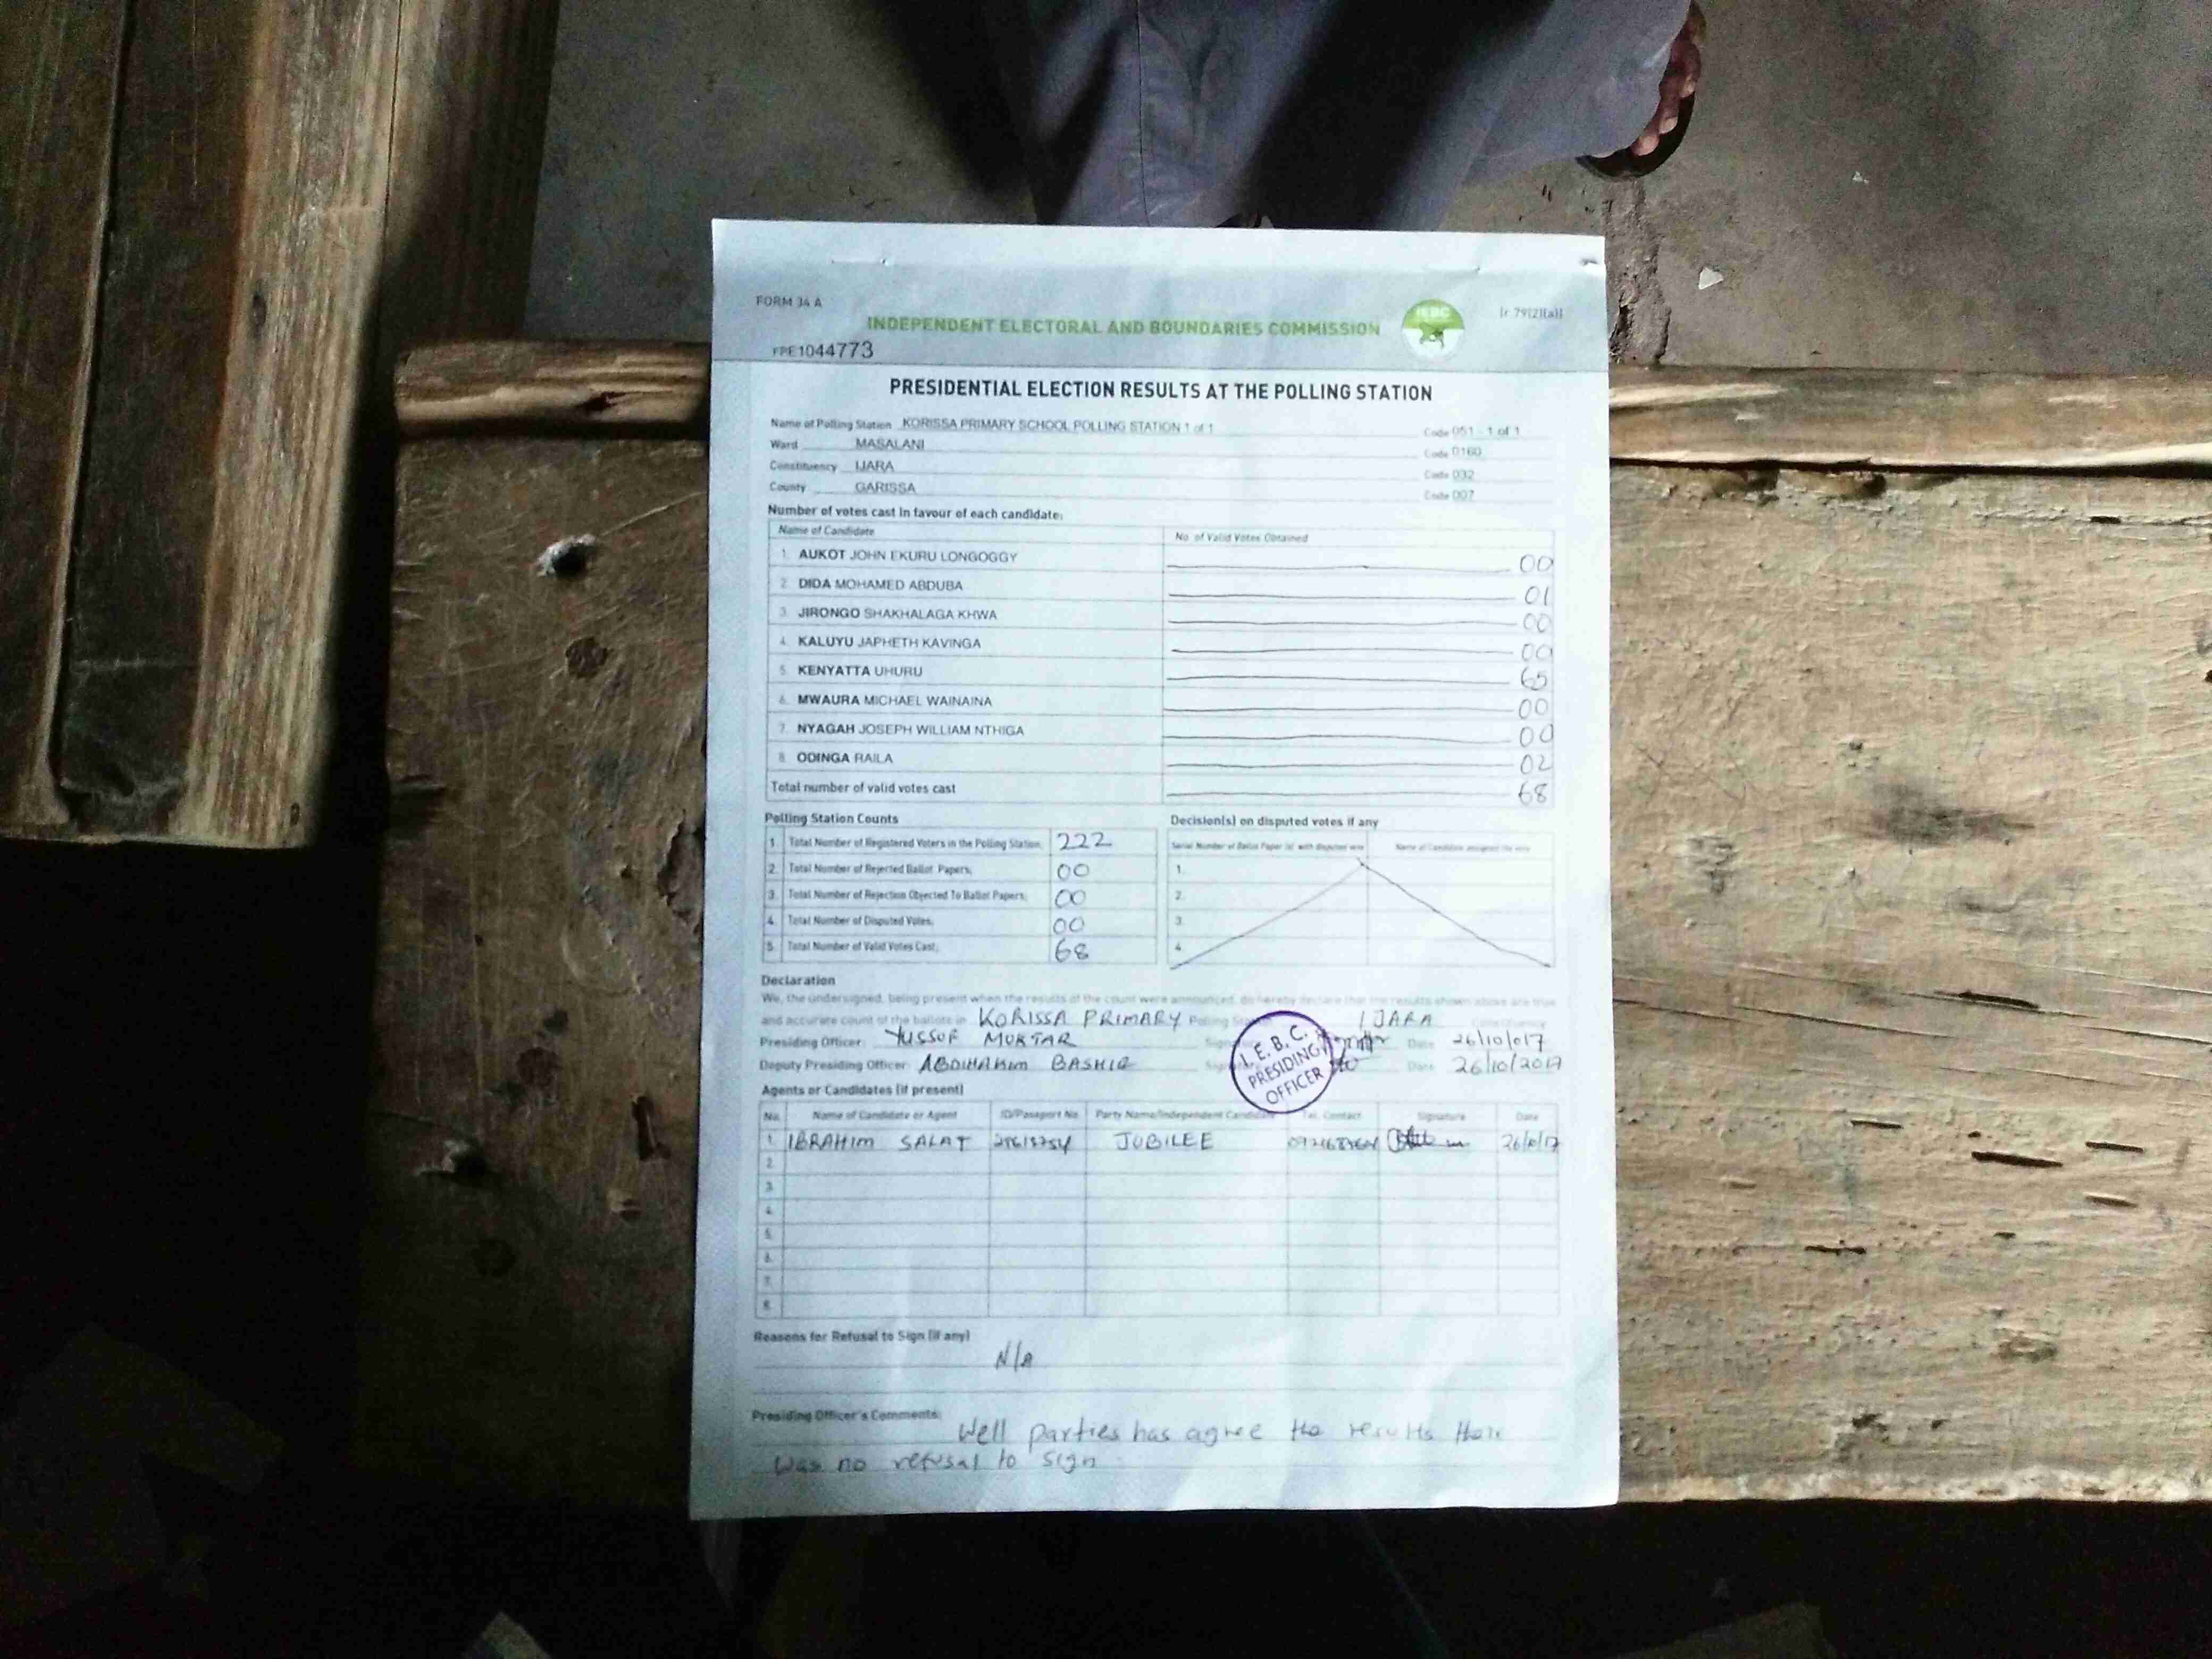 FORM 34 A
[r 79(2)(a)]
INDEPENDENT ELECTORAL AND BOUNDARIES COMMISSION
IEBC
FPE1044773
PRESIDENTIAL ELECTION RESULTS AT THE POLLING STATION
Name of Polling Station KORISSA PRIMARY SCHOOL POLLING STATION 1 of 1 Code 051 - 1 of 1
Ward MASALANI Code 0160
Constituency IJARA Code 032
County GARISSA Code 007
Number of votes cast in favour of each candidate:
Name of Candidate No. of Valid Votes Obtained
1. AUKOT JOHN EKURU LONGOGGY 00
2. DIDA MOHAMED ABDUBA 01
3. JIRONGO SHAKHALAGA KHWA 00
4. KALUYU JAPHETH KAVINGA 00
5. KENYATTA UHURU 65
6. MWAURA MICHAEL WAINAINA 00
7. NYAGAH JOSEPH WILLIAM NTHIGA 00
8. ODINGA RAILA 02
Total number of valid votes cast 68
Polling Station Counts
1. Total Number of Registered Voters in the Polling Station; 222
2. Total Number of Rejected Ballot Papers; 00
3. Total Number of Rejection Objected To Ballot Papers; 00
4. Total Number of Disputed Votes; 00
5. Total Number of Valid Votes Cast; 68
Decision(s) on disputed votes if any
Serial Number of Ballot Paper (s) with disputed vote Name of Candidate assigned the vote
1.
2.
3.
4.
Declaration
We, the undersigned, being present when the results of the count were announced, do hereby declare that the results shown above are true
and accurate count of the ballots in KORISSA PRIMARY Polling IJARA Constituency
Presiding Officer: YUSSUF MUKTAR Date 26/10/017
Deputy Presiding Officer: ABDIHAKIM BASHIR Date 26/10/2017
I. E. B. C.
PRESIDING
OFFICER
Agents or Candidates (if present)
No. Name of Candidate or Agent ID/Passport No. Party Name/Independent Candidate Tel. Contact Signature Date
1. IBRAHIM SALAT JUBILEE
2.
3.
4.
5.
6.
7.
8.
Reasons for Refusal to Sign (if any)
N/A
Presiding Officer's Comments:
Well parties has agree the results there
was no refusal to sign